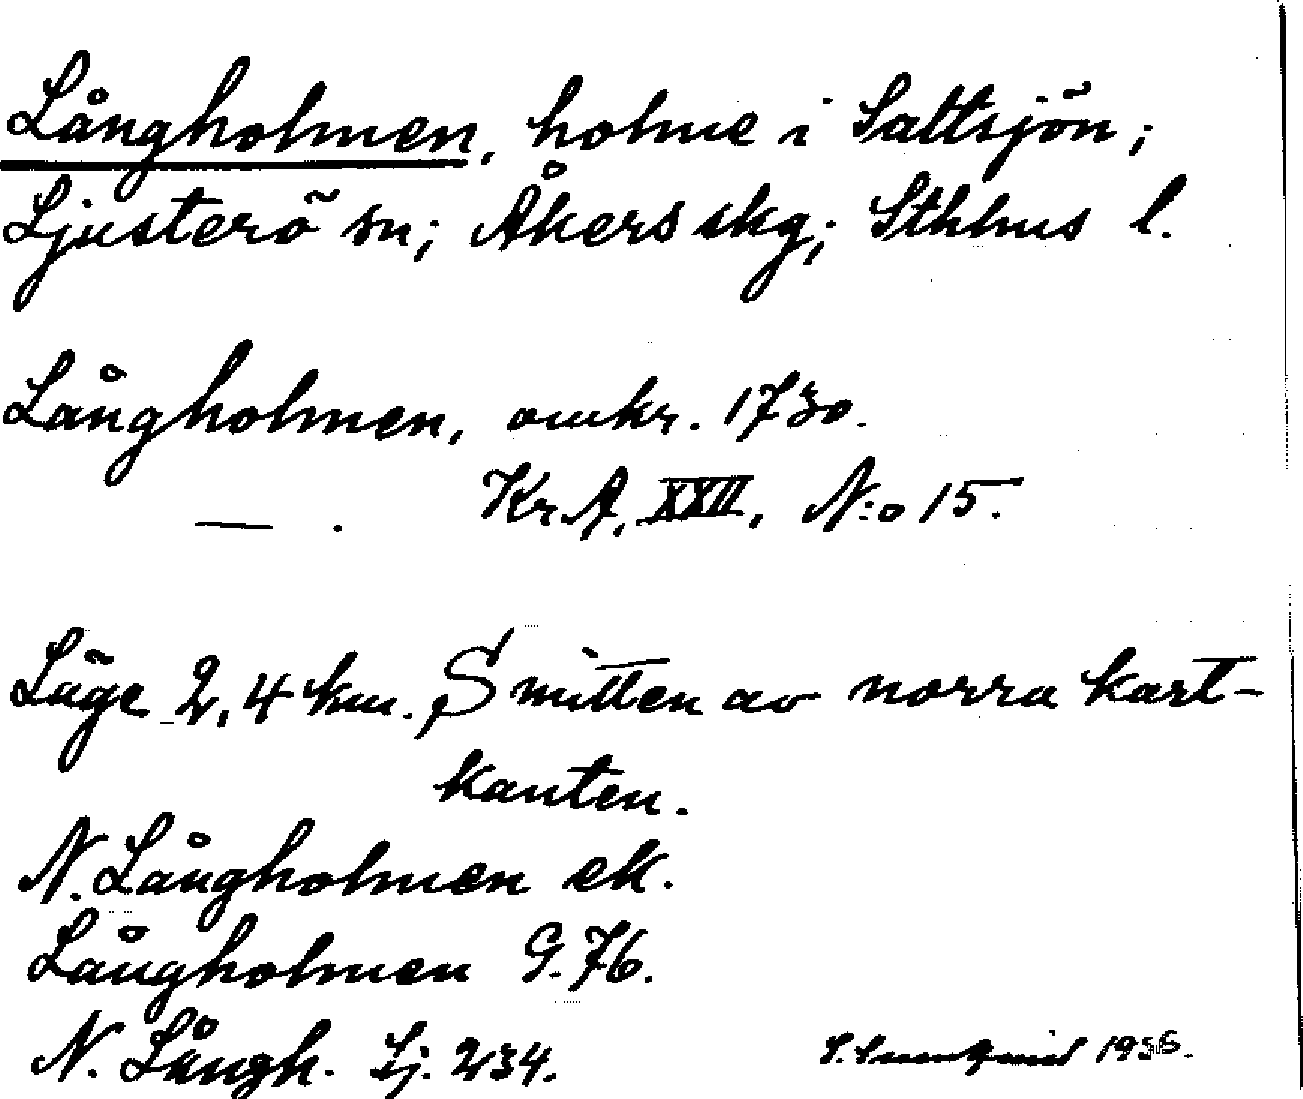 Långholmen, holme i Saltsjön;
Ljusterö sn; Åkers skg; Sthlms l.
Långholmen, omkr. 1730.
— . Kr.A, XXII, N:o 15.
Läge 2,4 km. S mitten av norra kart-
kanten.
N. Långholmen ek.
Långholmen G. 76.
N. Långh. Lj. 234.